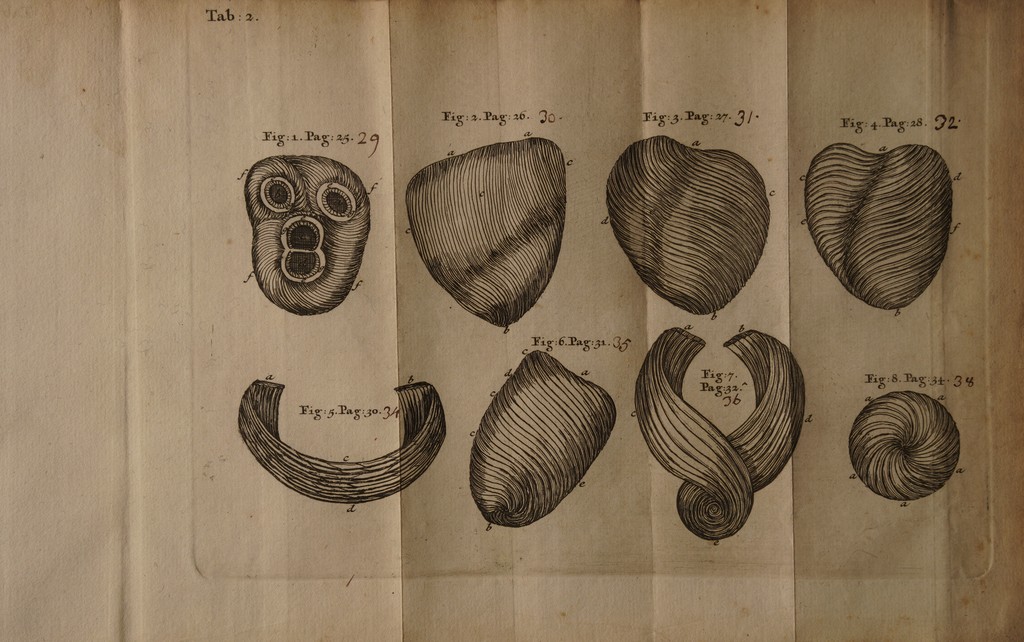 Tab: 2.
Fig: 1. Pag: 25. 29
Fig: 2. Pag: 26. 30.
Fig: 3. Pag: 27. 31.
Fig: 4. Pag: 28. 32.
f f
f f
a a c
c c
b
a
c
d
b
a
c d
f
b
Fig: 5. Pag: 30. 34
a b
c
d
Fig: 6. Pag: 31. 35
c
d a
c
e
b
a b
Fig: 7.
Pag: 32.
36
c d
e
Fig: 8. Pag: 34. 38
a a
a a
a